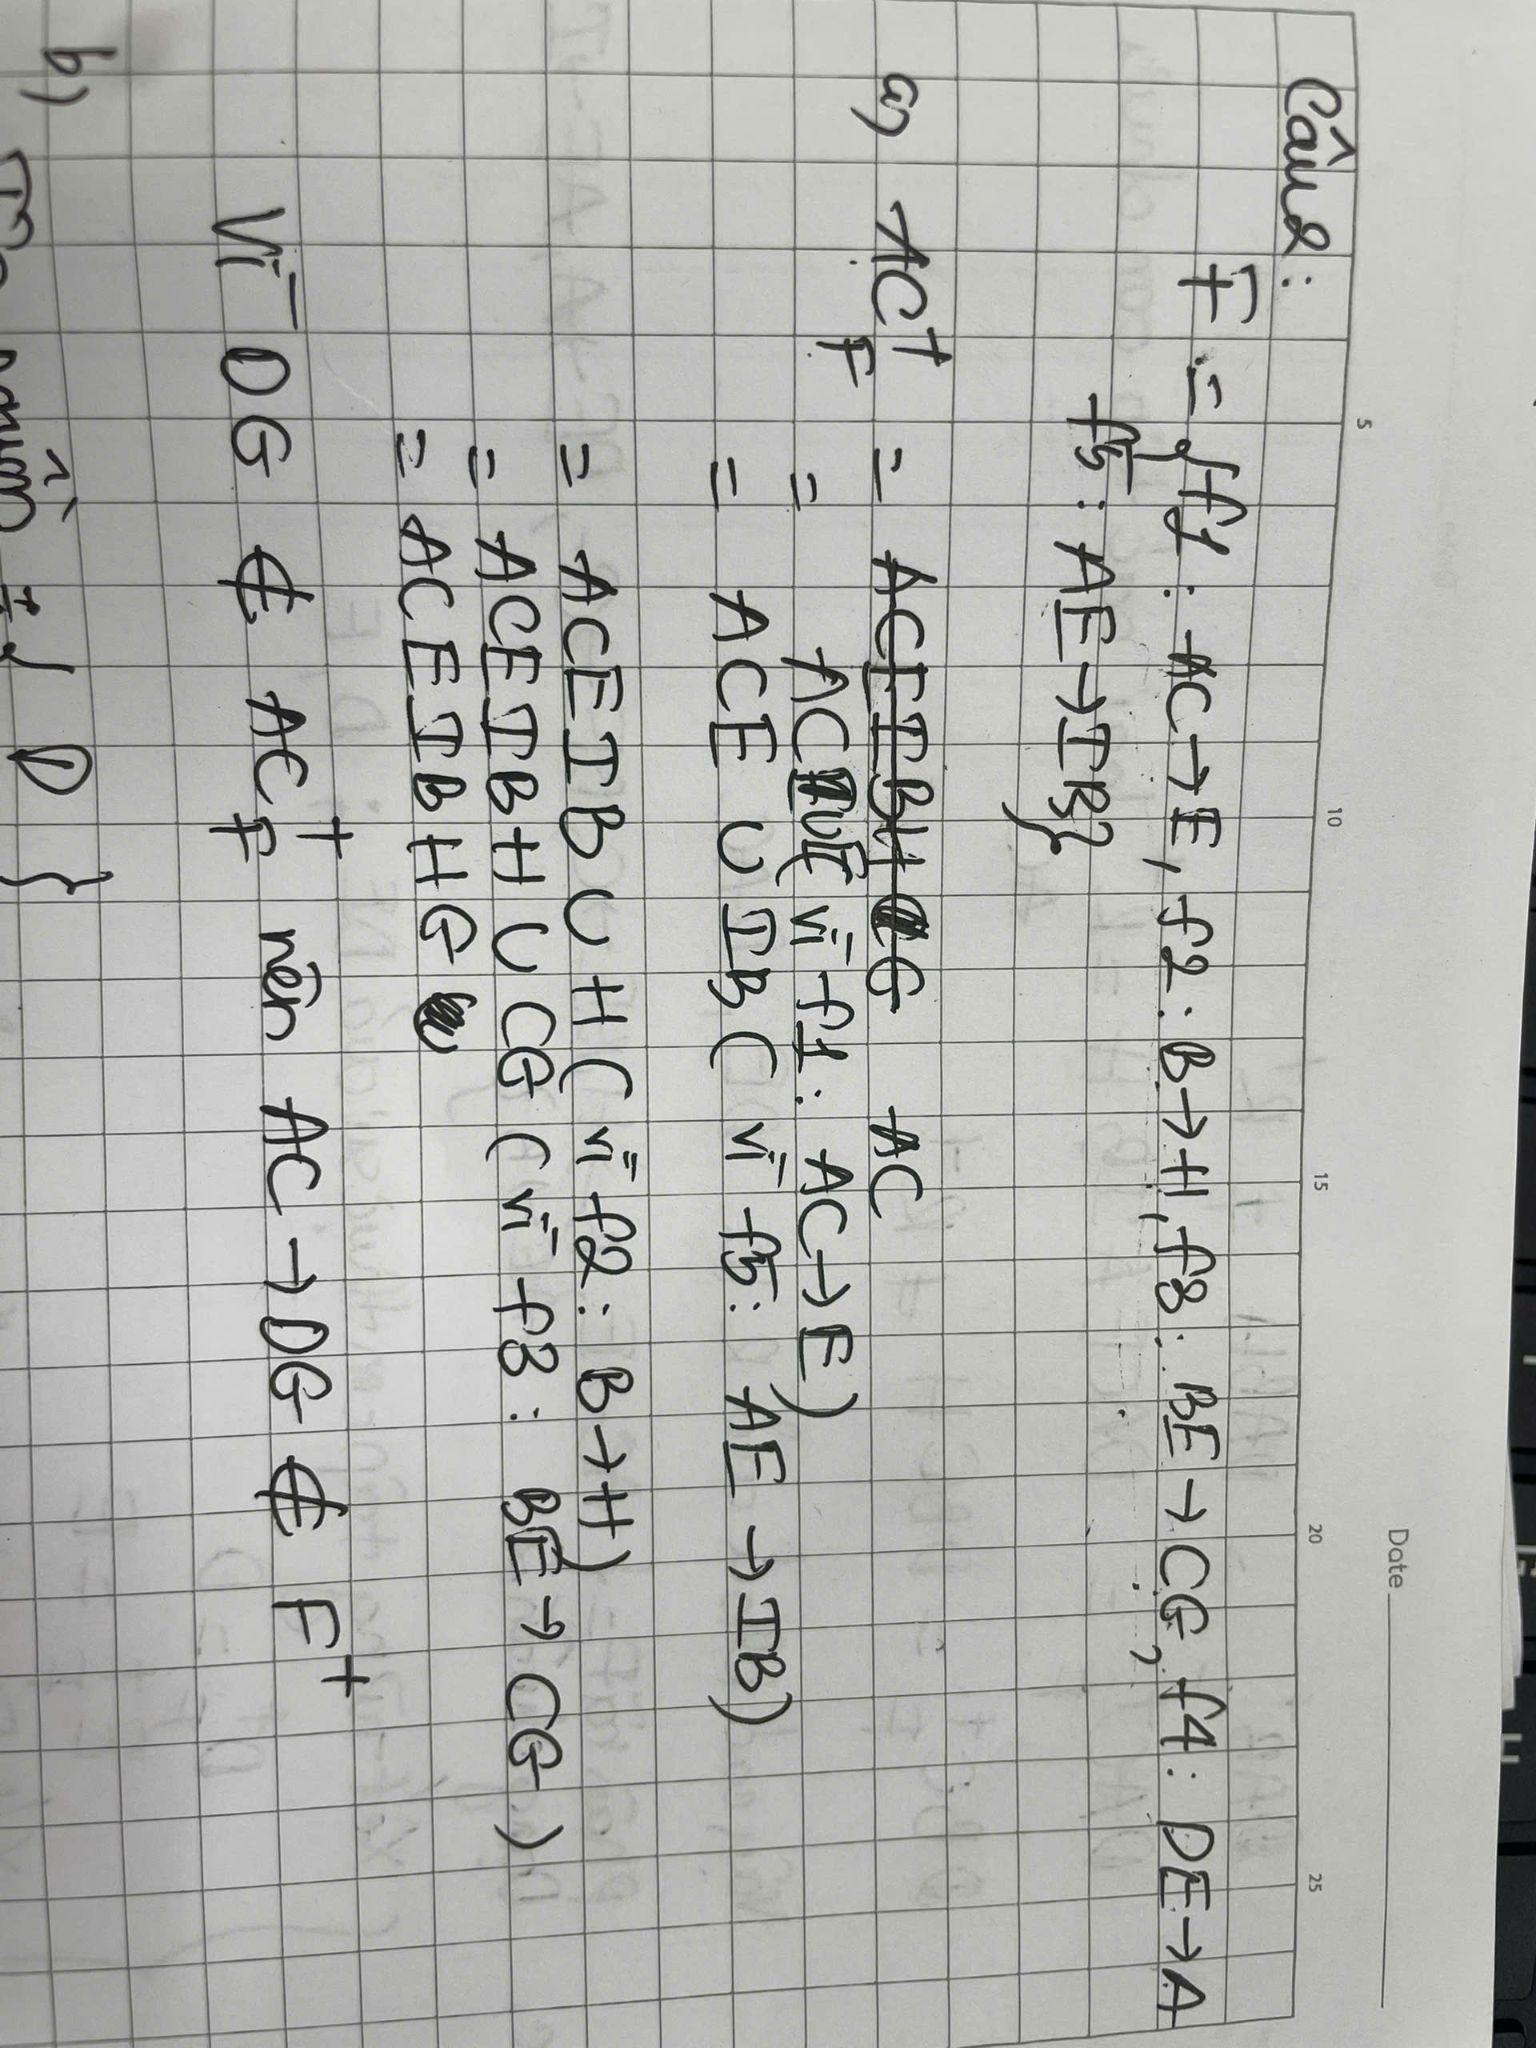 Date
5 10 15 20 25
Câu 2:
F = {f1: AC→E, f2: B→H, f3: BE→CG, f4: DE→A
f5: AE→IB}
a) AC⁺F = ACEIBHG AC
= AC∪E (vì f1: AC→E)
= ACE ∪ IB (vì f5: AE→IB)
= ACEIB ∪ H (vì f2: B→H)
= ACEIBH ∪ CG (vì f3: BE→CG)
= ACEIBHG
Vì DG ∉ AC⁺F nên AC→DG ∉ F⁺
b) { D }